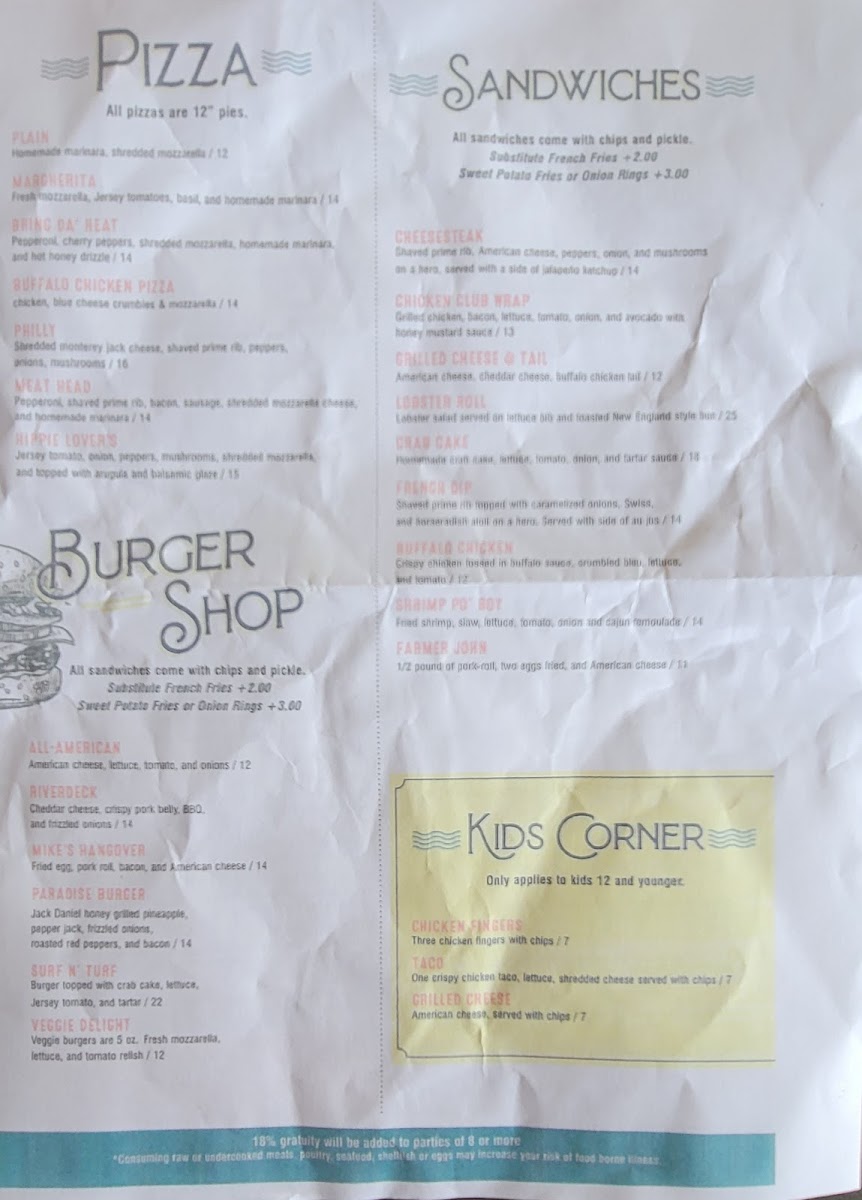 PIZZA
All pizzas are 12" pies.
PLAIN
Homemade marinara, shredded mozzarella / 12
MARGHERITA
Fresh mozzarella, Jersey tomatoes, basil, and homemade marinara / 14
BRING DA' HEAT
Pepperoni, cherry peppers, shredded mozzarella, homemade marinara,
and hot honey drizzle / 14
BUFFALO CHICKEN PIZZA
chicken, blue cheese crumbles & mozzarella / 14
PHILLY
Shredded monterey jack cheese, shaved prime rib, peppers,
onions, mushrooms / 16
MEAT HEAD
Pepperoni, shaved prime rib, bacon, sausage, shredded mozzarella cheese,
and homemade marinara / 14
HIPPIE LOVER'S
Jersey tomato, onion, peppers, mushrooms, shredded mozzarella,
and topped with arugula and balsamic glaze / 15
BURGER
SHOP
All sandwiches come with chips and pickle.
Substitute French Fries +2.00
Sweet Potato Fries or Onion Rings +3.00
ALL-AMERICAN
American cheese, lettuce, tomato, and onions / 12
RIVERDECK
Cheddar cheese, crispy pork belly, BBQ,
and frizzled onions / 14
MIKE'S HANGOVER
Fried egg, pork roll, bacon, and American cheese / 14
PARADISE BURGER
Jack Daniel honey grilled pineapple,
pepper jack, frizzled onions,
roasted red peppers, and bacon / 14
SURF N' TURF
Burger topped with crab cake, lettuce,
Jersey tomato, and tartar / 22
VEGGIE DELIGHT
Veggie burgers are 5 oz. Fresh mozzarella,
lettuce, and tomato relish / 12
SANDWICHES
All sandwiches come with chips and pickle.
Substitute French Fries +2.00
Sweet Potato Fries or Onion Rings +3.00
CHEESESTEAK
Shaved prime rib, American cheese, peppers, onion, and mushrooms
on a hero, served with a side of jalapeño ketchup / 14
CHICKEN CLUB WRAP
Grilled chicken, bacon, lettuce, tomato, onion, and avocado with
honey mustard sauce / 13
GRILLED CHEESE @ TAIL
American cheese, cheddar cheese, buffalo chicken tail / 12
LOBSTER ROLL
Lobster salad served on lettuce bib and toasted New England style bun / 25
CRAB CAKE
Homemade crab cake, lettuce, tomato, onion, and tartar sauce / 18
FRENCH DIP
Shaved prime rib topped with caramelized onions, Swiss,
and horseradish aioli on a hero. Served with side of au jus / 14
BUFFALO CHICKEN
Crispy chicken tossed in buffalo sauce, crumbled bleu, lettuce,
and tomato / 12
SHRIMP PO' BOY
Fried shrimp, slaw, lettuce, tomato, onion and cajun remoulade / 14
FARMER JOHN
1/2 pound of pork-roll, two eggs fried, and American cheese / 11
KIDS CORNER
Only applies to kids 12 and younger.
CHICKEN FINGERS
Three chicken fingers with chips / 7
TACO
One crispy chicken taco, lettuce, shredded cheese served with chips / 7
GRILLED CHEESE
American cheese, served with chips / 7
18% gratuity will be added to parties of 8 or more
*Consuming raw or undercooked meats, poultry, seafood, shellfish or eggs may increase your risk of food borne illness.